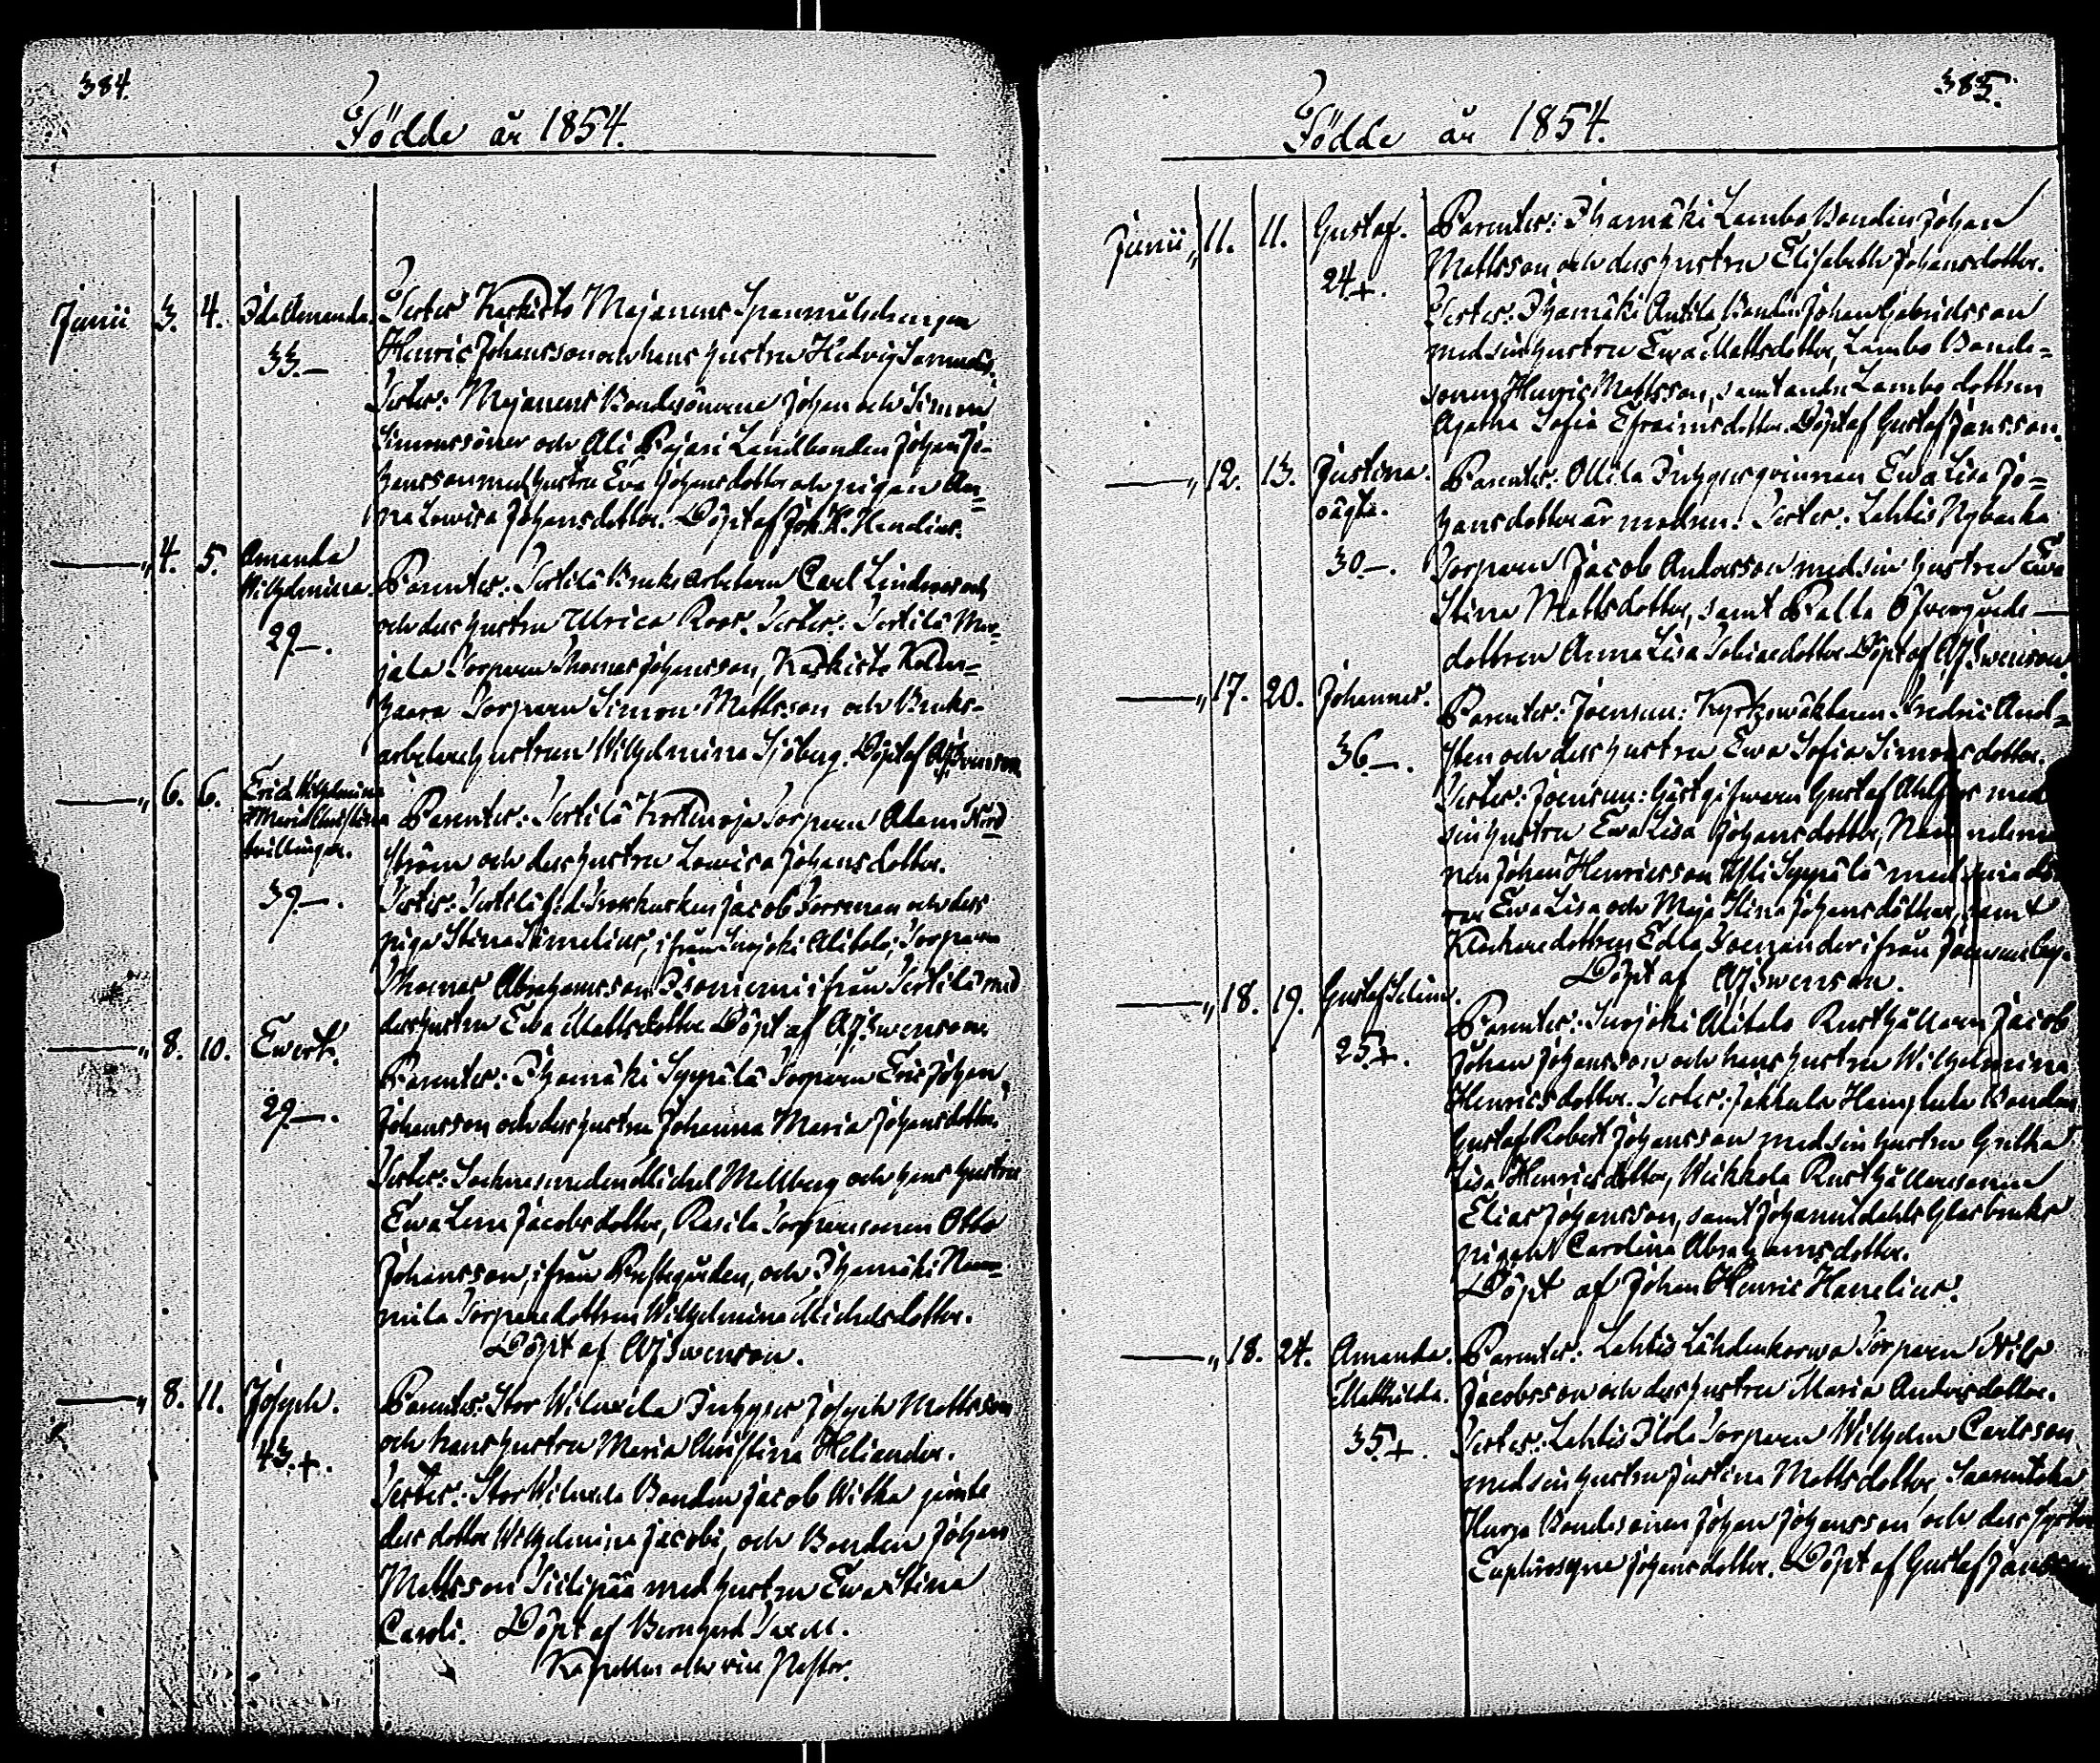 384.
Födde år 1854.
Junii 3. 4. Ida Amanda.
33.—
Henric Johansson och hans hustru Hedvig
Testes: Majanens Bondsönerne Johan och Simon
Simonssöner och Ali Pajari Landbonden Johan Jo-
hansson med hustru Eva Johansdotter och pigan An-
na Lowisa Johansdotter. Döpt af Joh. H. Hanelius.
—„ 4. 5. Amanda
Wilhelmina.
29.—.
Parentes: Tertilä Bruksarbetaren Carl
och dess hustru Ulrica Roos. Testes: Tertilä
Torparen Thomas Johansson, Kaskisto
Torparen Simon Mattsson och Bruks-
arbetarehustrun Wilhelmina Sjöberg. Döpt af AJSwenson.
—„ 6. 6. Erica Wilhelmina
& Maria Christina
tvillingar.
39.—.
Parentes: Tertilä Torparen Adam
ström och dess hustru Lowisa Johansdotter.
Testes: Tertilä Jacob Forsman och dess
piga Stina ifrån Surjoki Alitalo, Torparen
Thomas Abrahamsson Isoniemi ifrån Tertilä med
dess hustru Ewa Mattsdotter Döpt af AJSwenson.
—„ 8. 10. Ewert.
29.—.
Parentes: Ihamäki Seppälä Torparen Eric Johan
Johansson och dess hustru Johanna Maria Johansdotter.
Testes: Sockensmeden Michel Mellberg och hans hustru
Ewa Lena Jacobsdotter, Rasila Torparesonen Otto
Johansson, ifrån Prestegården, och Ihamäki
Torparedottren Wilhelmina Michelsdotter.
Döpt af AJSwenson.
—„ 8. 11. Joseph.
43.+.
Parentes: Stor Inhyses Joseph Mattsson
och hans hustru Maria Christina Heliander.
Testes: Stor Bonden Jacob jemte
dess dotter Wilhelmina Jacobi, och Bonden Johan
Mattsson med hustru Ewa Stina
Caroli. Döpt af Bernhard
Kapellan och vice Pastor.
385.
Födde år 1854.
Junii „ 11. 11. Gustaf.
24.+.
Parentes: Ihamäki Lambo Bonden Johan
Mattsson och dess hustru Elisabeth Johansdotter.
Testes: Ihamäki Anttila Bonden Johan Gabrielsson
med sin hustru Ewa Mattsdotter, Lambo Bonde-
sonen Henric Mattsson, samt Lambo dottren
Agatha Sofia Efraimsdotter. Döpt af Gustaf Jansson.
—„ 12. 13. Justina.
oägta.
30.—.
Parentes: Ollila Inhysesqvinnan Ewa Lisa Jo-
hansdotter är modren. Testes: Lahtis Nybacka
Torparen Jacob Andersson med sin hustru Ewa
Stina Mattsdotter, samt
dottren Anna Lisa Tobiaedotter Döpt af AJSwenson.
—„ 17. 20. Johannes.
36.—.
Parentes: Joensuu: Kyrkowäktaren Fredric
och dess hustru Ewa Sofia Simonsdotter.
Testes: Joensuu: Gästgifwaren Gustaf Ahlfors med
sin hustru Ewa Lisa Johansdotter,
Johan Henricsson Seppälä med sina
Ewa Lisa och Maja Stina Johansdöttrar, samt
Klockaredottren Edla ifrån Joensuu
Döpt af AJSwenson.
—„ 18. 19. Gustaf Selim.
25.+.
Parentes: Surjoki Alitalo Rusthållaren Jacob
Johan Johansson och hans hustru Wilhelmina
Henricsdotter. Testes: Jakkula Bonden
Gustaf Robert Johansson med sin hustru Gretha
Lisa Henricsdotter, Weikkola Rusthållaresonen
Elias Johansson, samt Johannisdahls Glasbruks
pigan Carolina Abrahamsdotter.
Döpt af Johan Henric Hanelius.
—„ 18. 24. Amanda.
Mathilda.
35.+.
Parentes: Lahtis Lähdenkorwa Torparen Nils
Jacobsson och dess hustru Maria Andersdotter.
Testes: Lahtis Ilola Torparen Wilhelm Carlsson
med sin hustru Justina Mattsdotter,
Hurja Bondesonen Johan Johansson och dess syster
Euphrosyne Johansdotter. Döpt af Gustaf Jansson